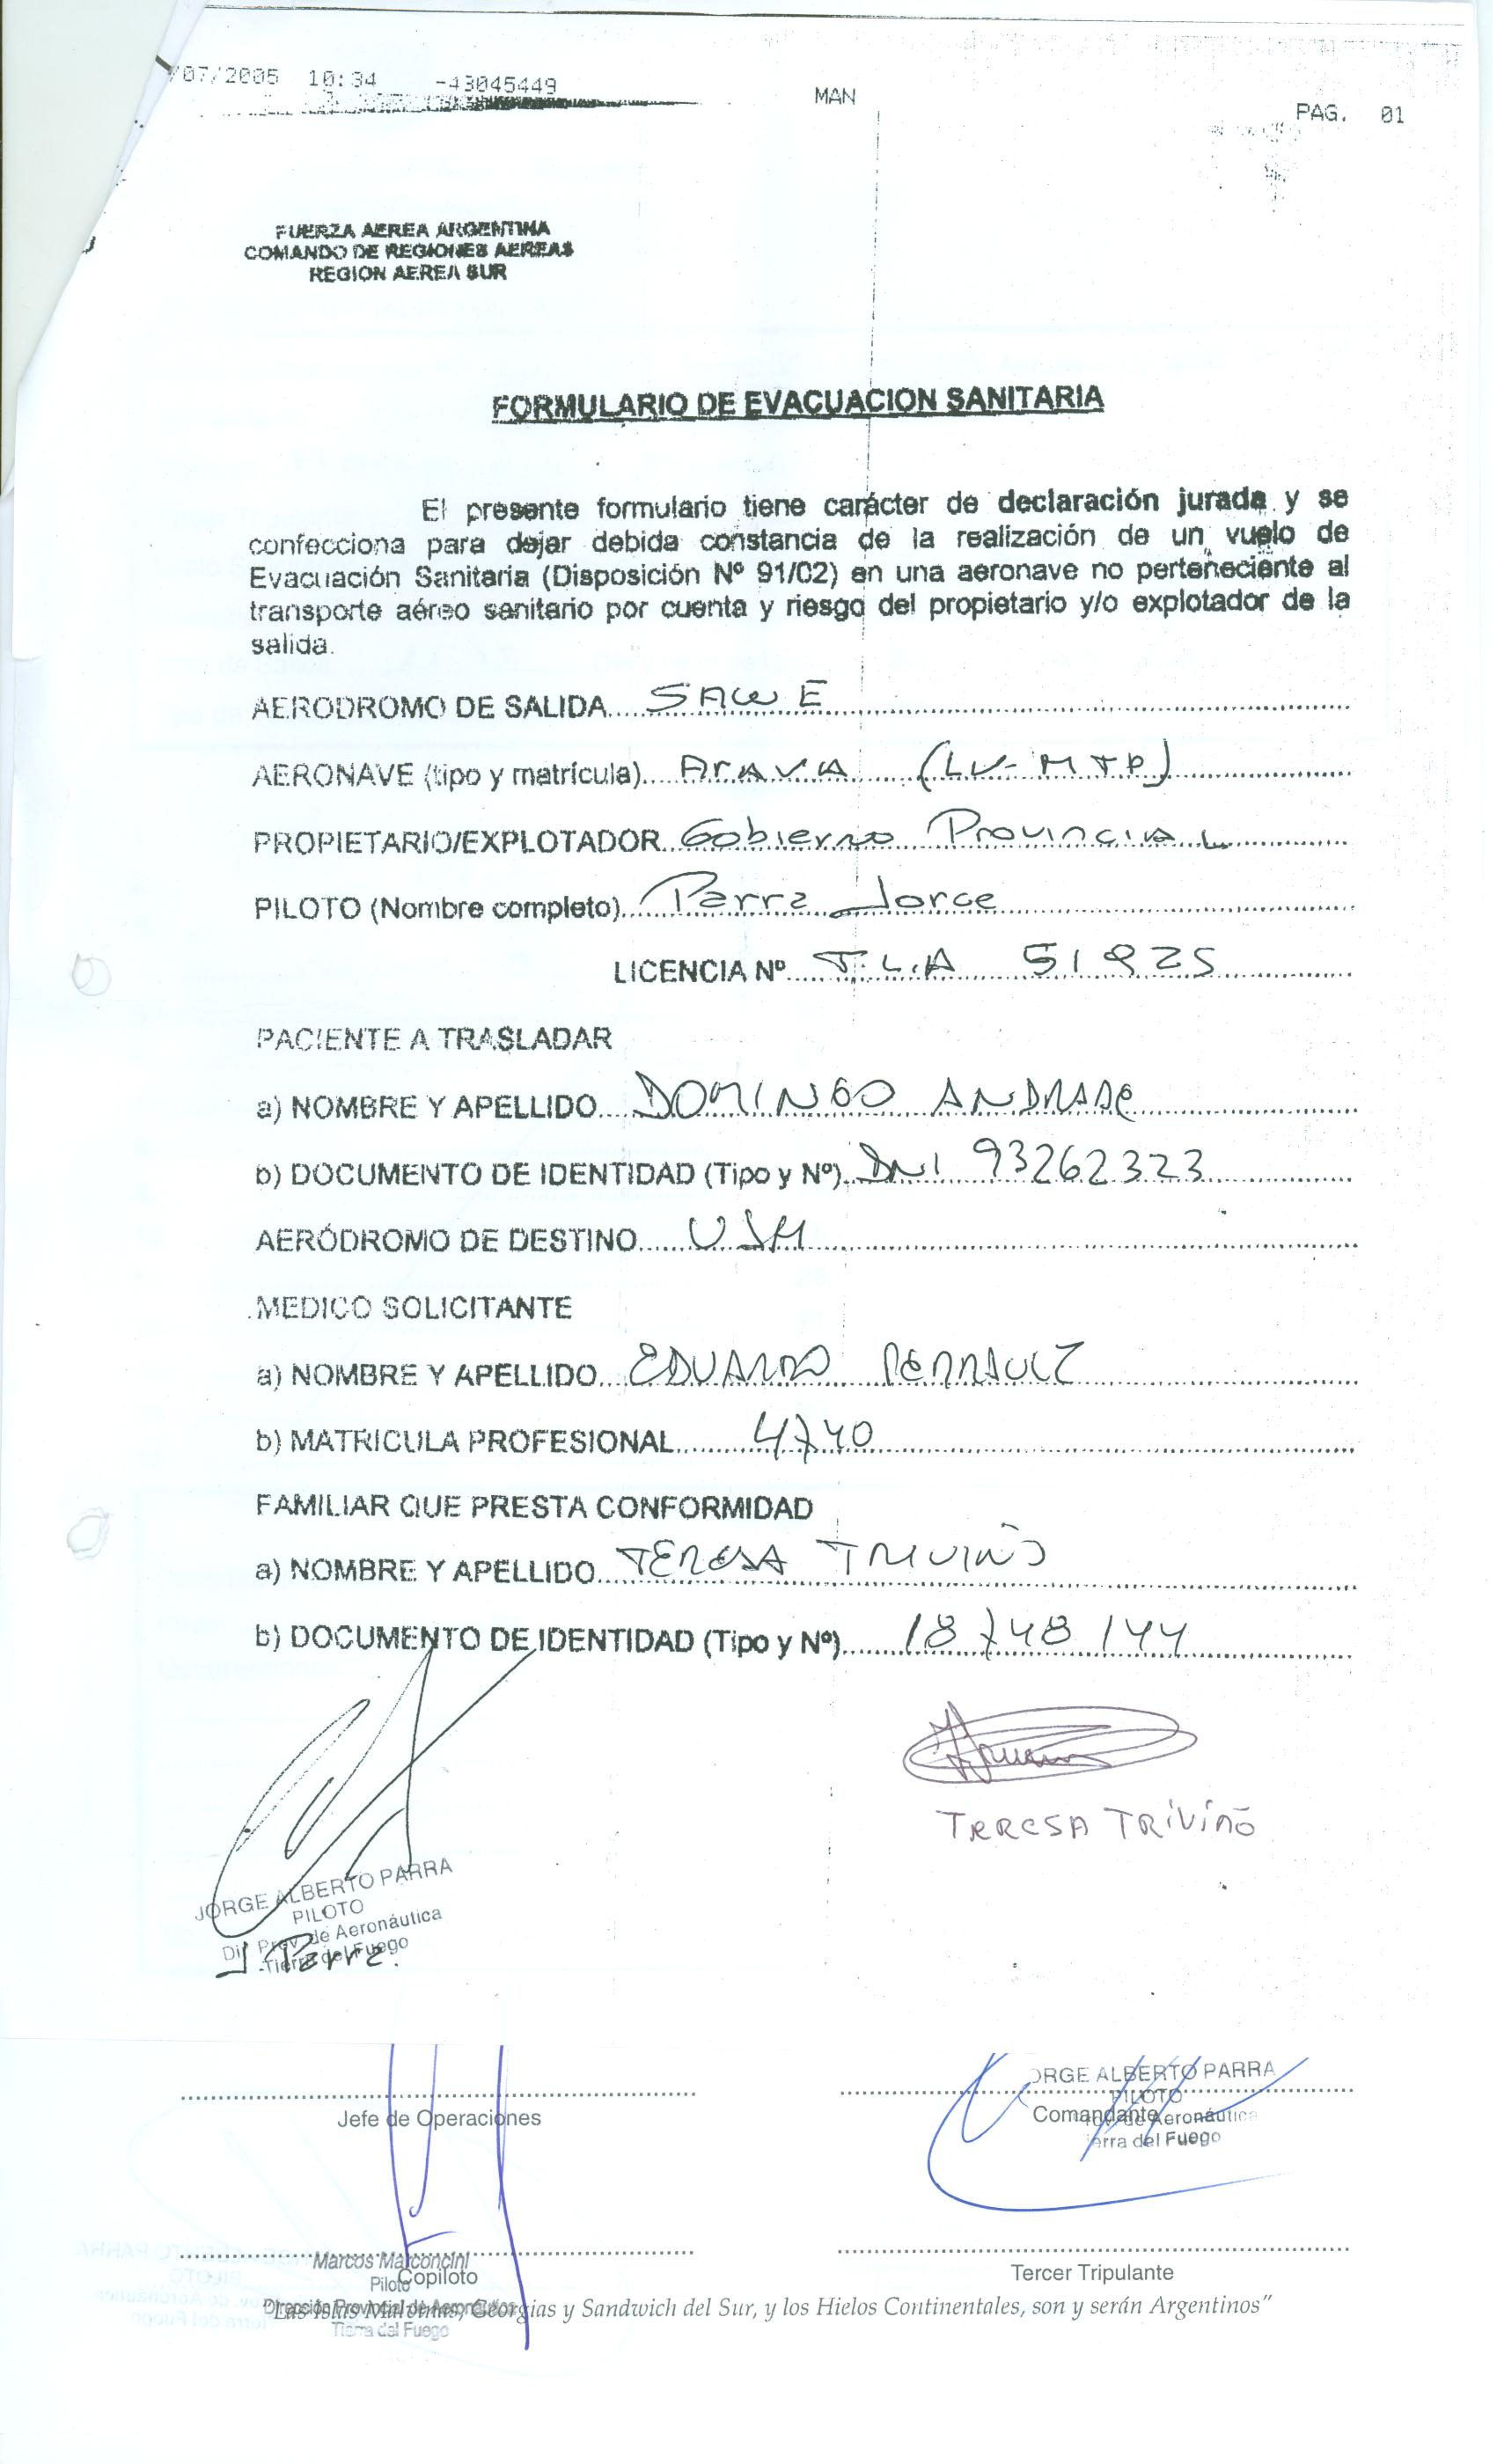 /07/2005 10:34 -43045449 MAN PAG. 01
FUERZA AEREA ARGENTINA
COMANDO DE REGIONES AEREAS
REGION AEREA SUR
FORMULARIO DE EVACUACION SANITARIA
El presente formulario tiene carácter de declaración jurada y se
confecciona para dejar debida constancia de la realización de un vuelo de
Evacuación Sanitaria (Disposición Nº 91/02) en una aeronave no perteneciente al
transporte aéreo sanitario por cuenta y riesgo del propietario y/o explotador de la
salida.
AERODROMO DE SALIDA SAWE
AERONAVE (tipo y matrícula) Arava (LV-MTP)
PROPIETARIO/EXPLOTADOR Gobierno Provincial
PILOTO (Nombre completo) Parra Jorge
LICENCIA Nº T.L.A 51825
PACIENTE A TRASLADAR
a) NOMBRE Y APELLIDO DOMINGO ANDRADE
b) DOCUMENTO DE IDENTIDAD (Tipo y Nº) DNI 93262323
AERÓDROMO DE DESTINO USH
MEDICO SOLICITANTE
a) NOMBRE Y APELLIDO EDUARDO PERRAULT
b) MATRICULA PROFESIONAL 4740
FAMILIAR QUE PRESTA CONFORMIDAD
a) NOMBRE Y APELLIDO TERESA TRIVIÑO
b) DOCUMENTO DE IDENTIDAD (Tipo y Nº) 18748144
TERESA TRIVIÑO
JORGE ALBERTO PARRA
PILOTO
Dir. Prov. de Aeronáutica
Tierra del Fuego
J Parra.
Jefe de Operaciones
ORGE ALBERTO PARRA
PILOTO
Comandante
rov. de Aeronáutica
ierra del Fuego
Marcos Marconcini
Piloto
Copiloto
Dirección Provincial de Aeronáutica
Tierra del Fuego
Tercer Tripulante
"Las Islas Malvinas, Georgias y Sandwich del Sur, y los Hielos Continentales, son y serán Argentinos"